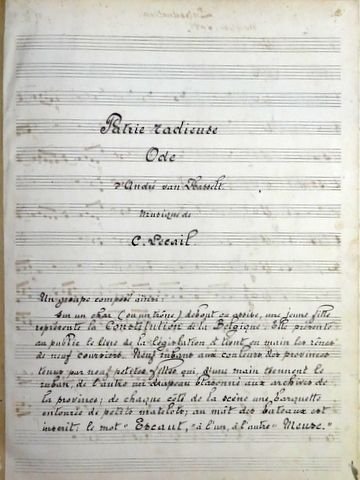 Patrie radieuse
Ode
d'André van Hasselt
Musique de
C.
Un groupe composé ainsi:
Sur un char (ou un trône) debout ou assise, une jeune fille
représente la Constitution de la Belgique. Elle présente
au public le livre de la législation et tient en main les rênes
de neuf courriers. Neuf rubans aux couleurs des provinces
tenus par neuf petites filles qui, d'une main tiennent le
ruban, de l'autre un drapeau blasonné aux archives de
la province; de chaque côté de la scène une barquette
entourée de petits matelots; au mât des bateaux est
inscrit: le mot "Escaut," à l'un, à l'autre "Meuse."